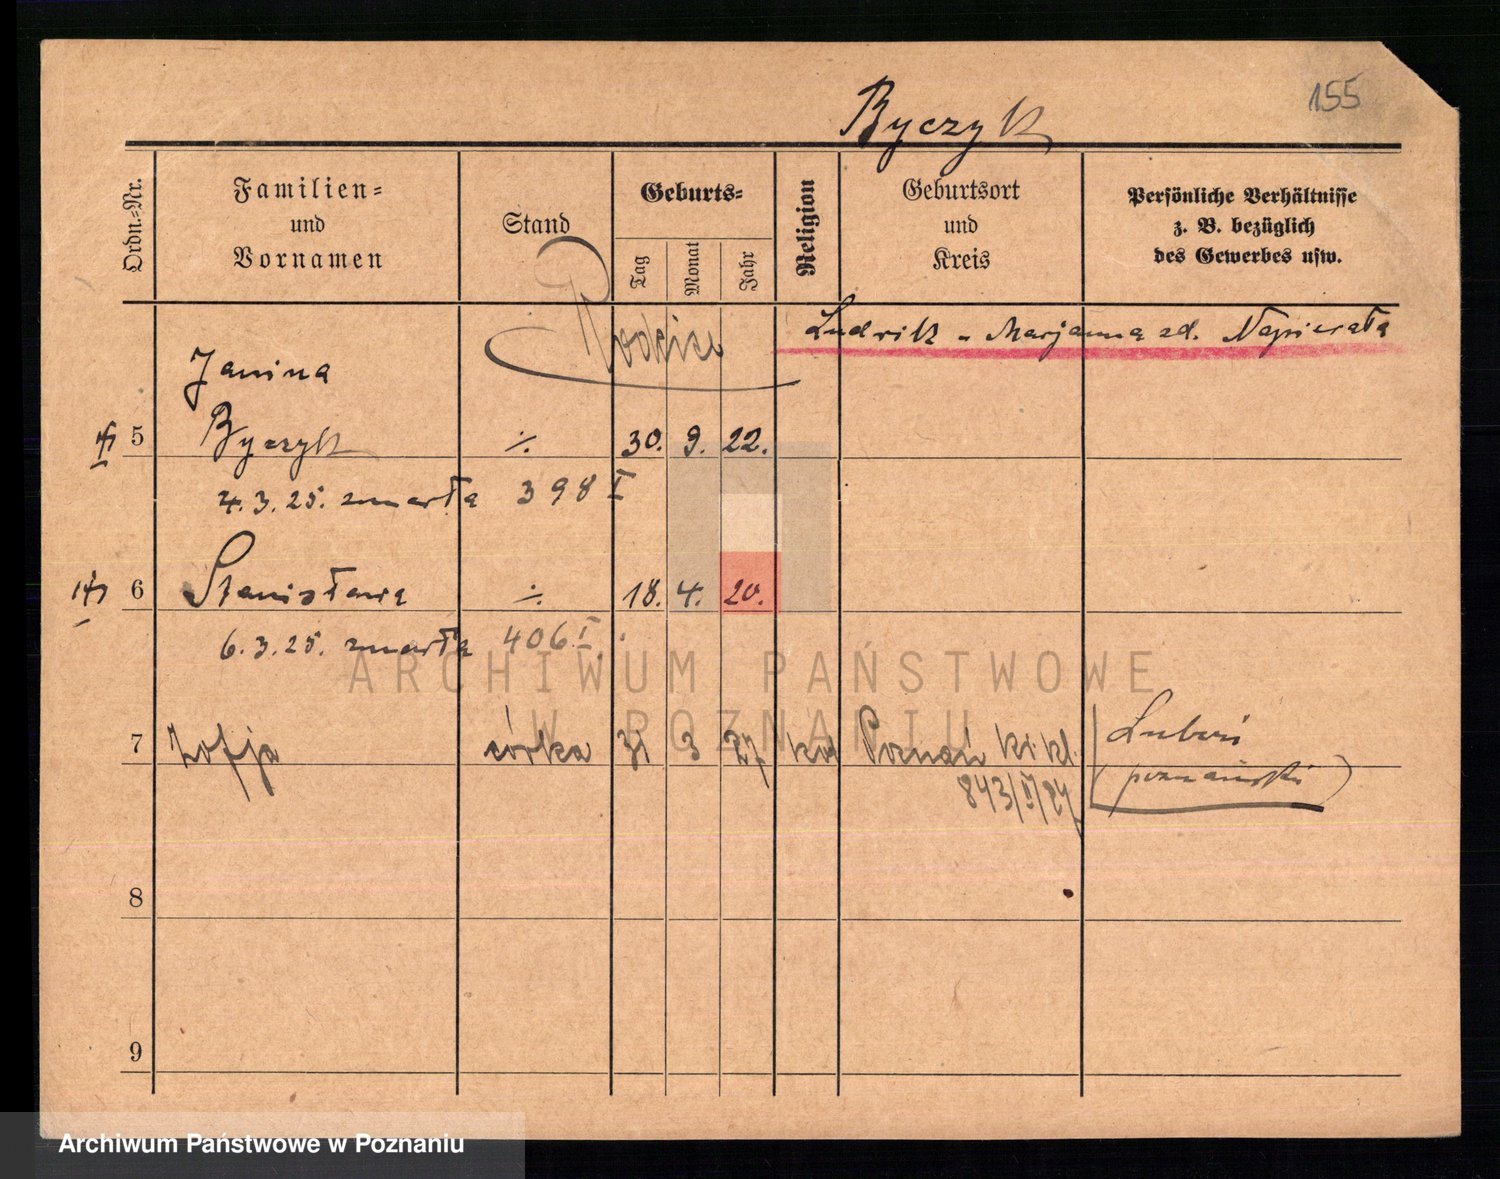 155
Byczyk
Ordn.=Nr.
Familien=
und
Vornamen
Stand
Geburts=
Tag
Monat
Jahr
Religion
Geburtsort
und
Kreis
Persönliche Verhältnisse
z. B. bezüglich
des Gewerbes usw.
Rodzice
Ludwik - Marjanna zd. Napierała
Janina
5 Byczyk ./. 30. 9. 22.
4.3.25. zmarła 398 I
6 Stanisława ./. 18. 4. 20.
6.3.25. zmarła 406 I.
ARCHIWUM PAŃSTWOWE
W POZNANIU
7 Zofja córka 31 3 27 kat Poznań
843/II/27
Luboń
(poznański)
8
9
Archiwum Państwowe w Poznaniu